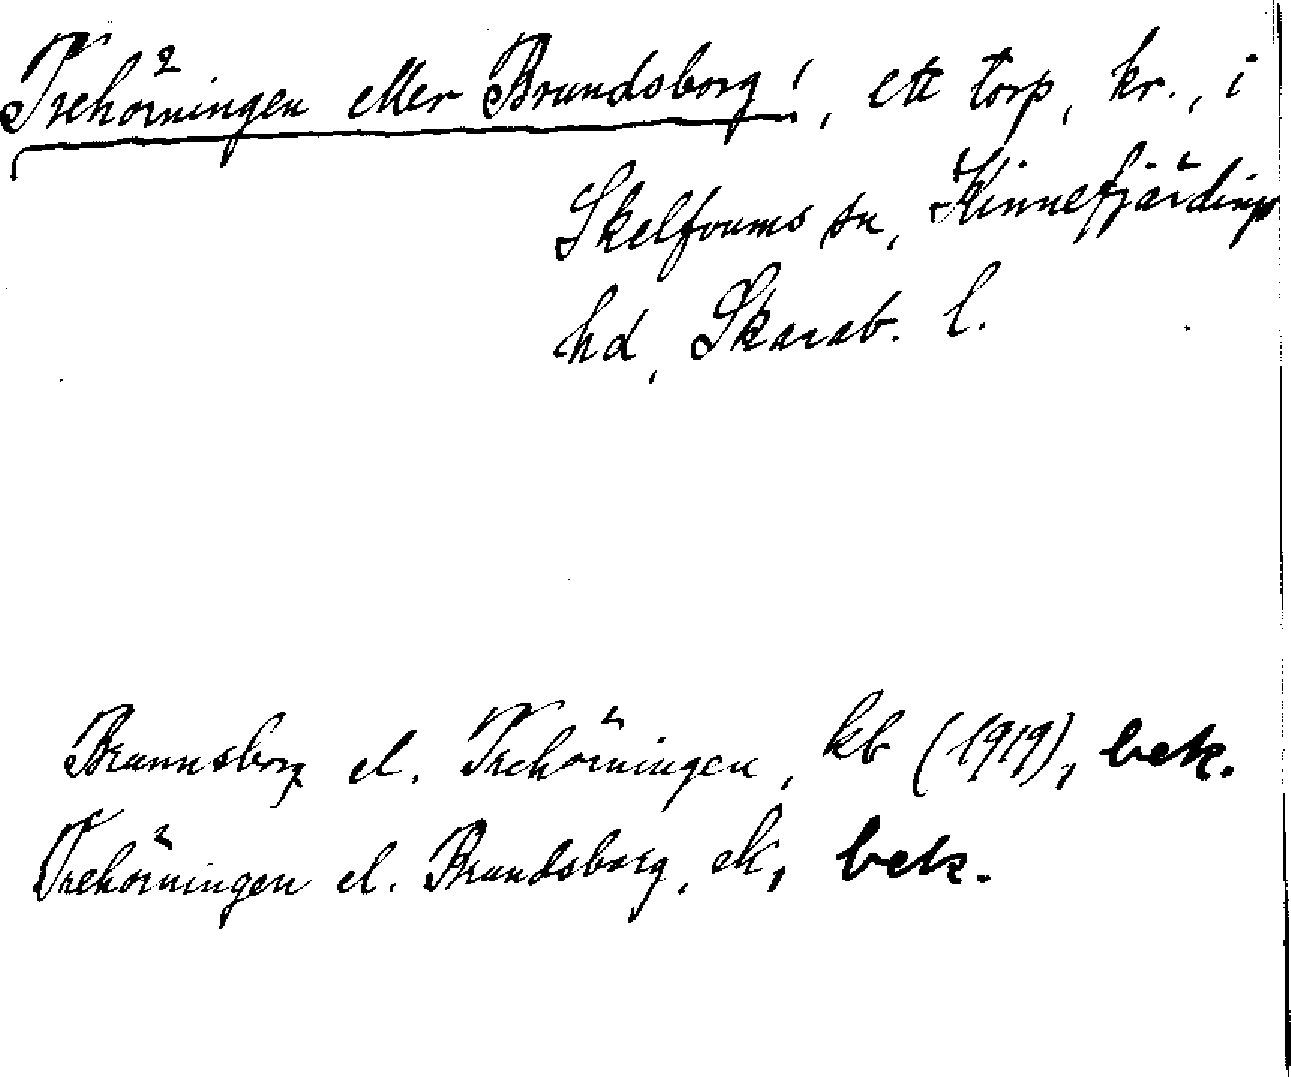 Trehörningen eller Brundsborg!, ett torp, kr., i
Skelfvums sn, Kinnefjärdings
hd, Skarab. l.
Brunnsborg el. Trehörningen, kb (1919), bek.
Trehörningen el. Brundsborg, ek, bek.